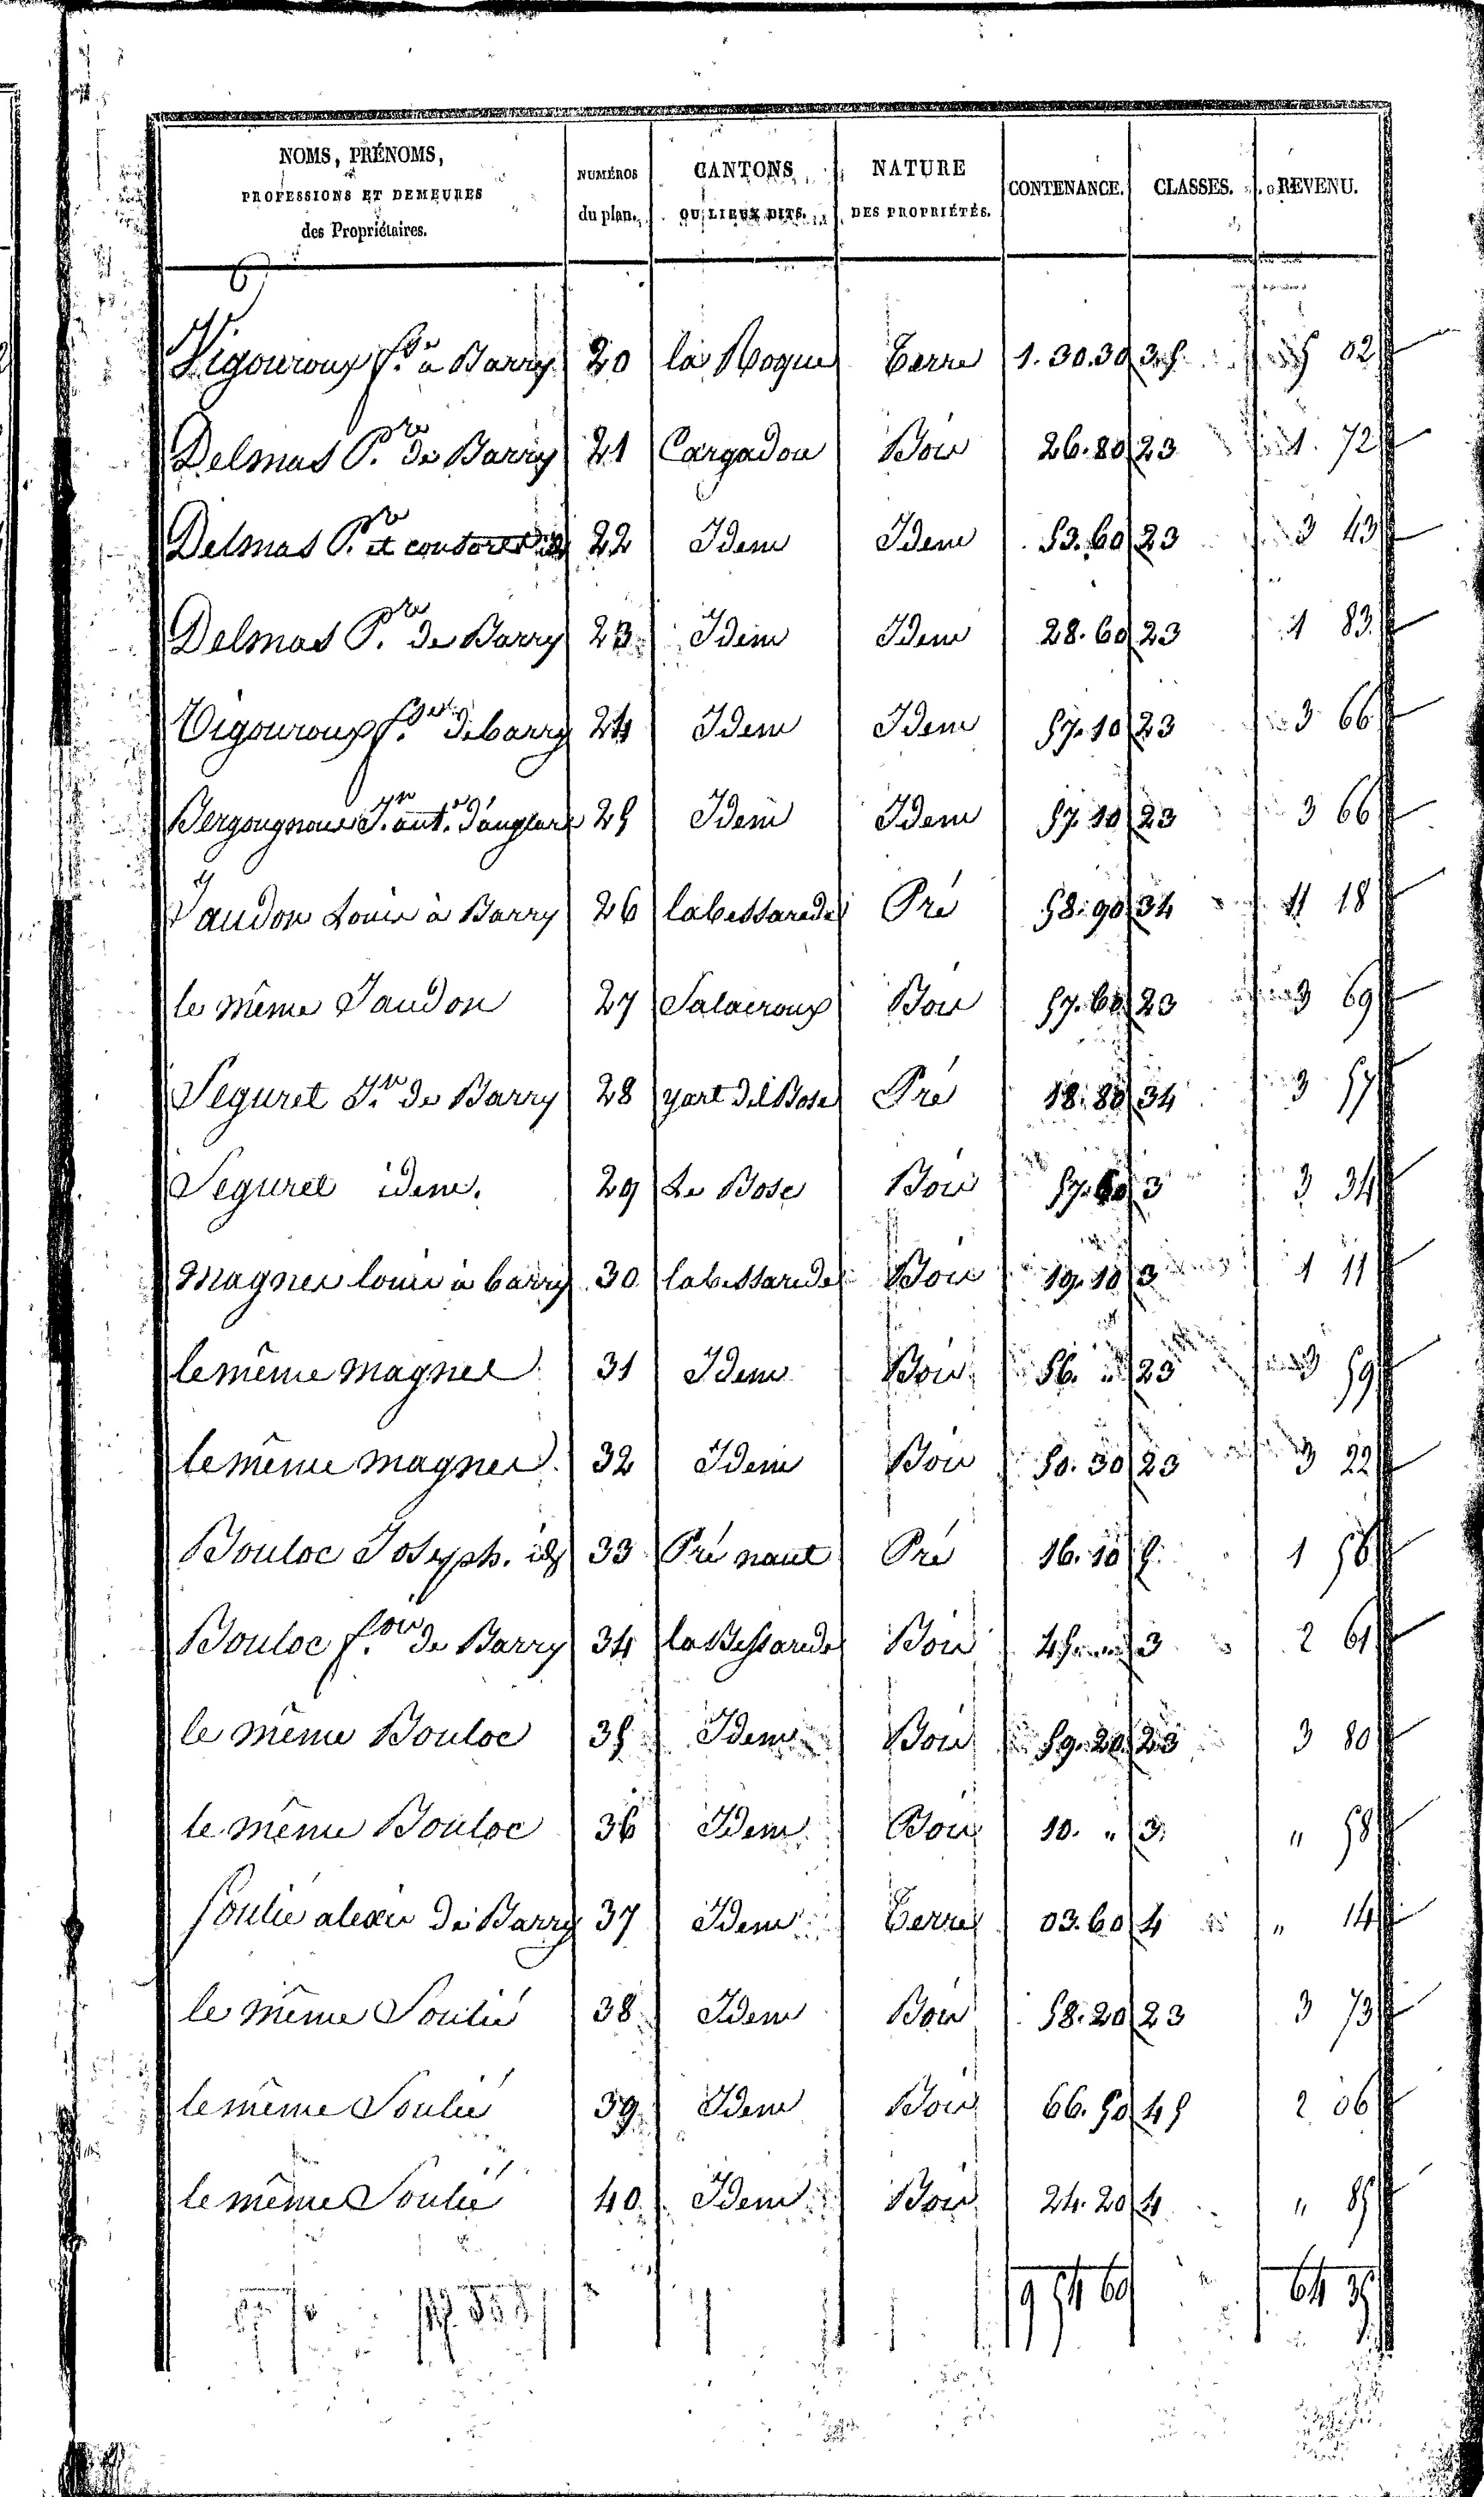 NOMS, PRÉNOMS, PROFESSIONS ET DEMEURES des Propriétaires. NUMÉROS du plan. CANTONS OU LIEUX DITS. NATURE DES PROPRIÉTÉS. CONTENANCE. CLASSES. REVENU.
Vigouroux f. à Barry 20 la Roque Terre 1. 30. 30 3.5. 5 02
Delmas P.re de Barry 21 Cargadou Bois 26. 80 23 1. 72
Delmas P.re et consorts id 22 Idem Idem 53. 60 23 3 43
Delmas P.re de Barry 23 Idem Idem 28. 60 23 1 83
Vigouroux f. de barry 24 Idem Idem 57. 10 23 3 66
Bergougnoux J.n ant.e d'anglars 25 Idem Idem 57. 10 23 3 66
Jaudon Louis à Barry 26 labessarede Pré 58. 90 34 11 18
le même Jaudon 27 Salacroux Bois 57. 60 23 3 69
Seguret J.n de Barry 28 yart del Bosc Pré 18. 80 34 3 57
Seguret idem. 29 Le Bosc Bois 57. 60 3 3 34
Magnes louis à barry 30 labessarede Bois 19. 10 3 1 11
le même magnes 31 Idem Bois 56. " 23 3 59
le même magnes 32 Idem Bois 50. 30 23 3 22
Bouloc Joseph. id 33 Pré naut Pré 16. 10 5. 1 56
Bouloc f.ois de Barry 34 la Bessarede Bois 45. " 3 2 61
le même Bouloc 35 Idem Bois 59. 20. 23 3 80
le même Bouloc 36 Idem Bois 10. " 3. " 58
Soulié alexis de Barry 37 Idem Terre 03. 60 4 " 14
le même Soulié 38 Idem Bois 58. 20 23 3 73
le même Soulié 39 Idem Bois 66. 50 45 2 06
le même Soulié 40 Idem Bois 24. 20 4 " 85
9 54 60 64 35